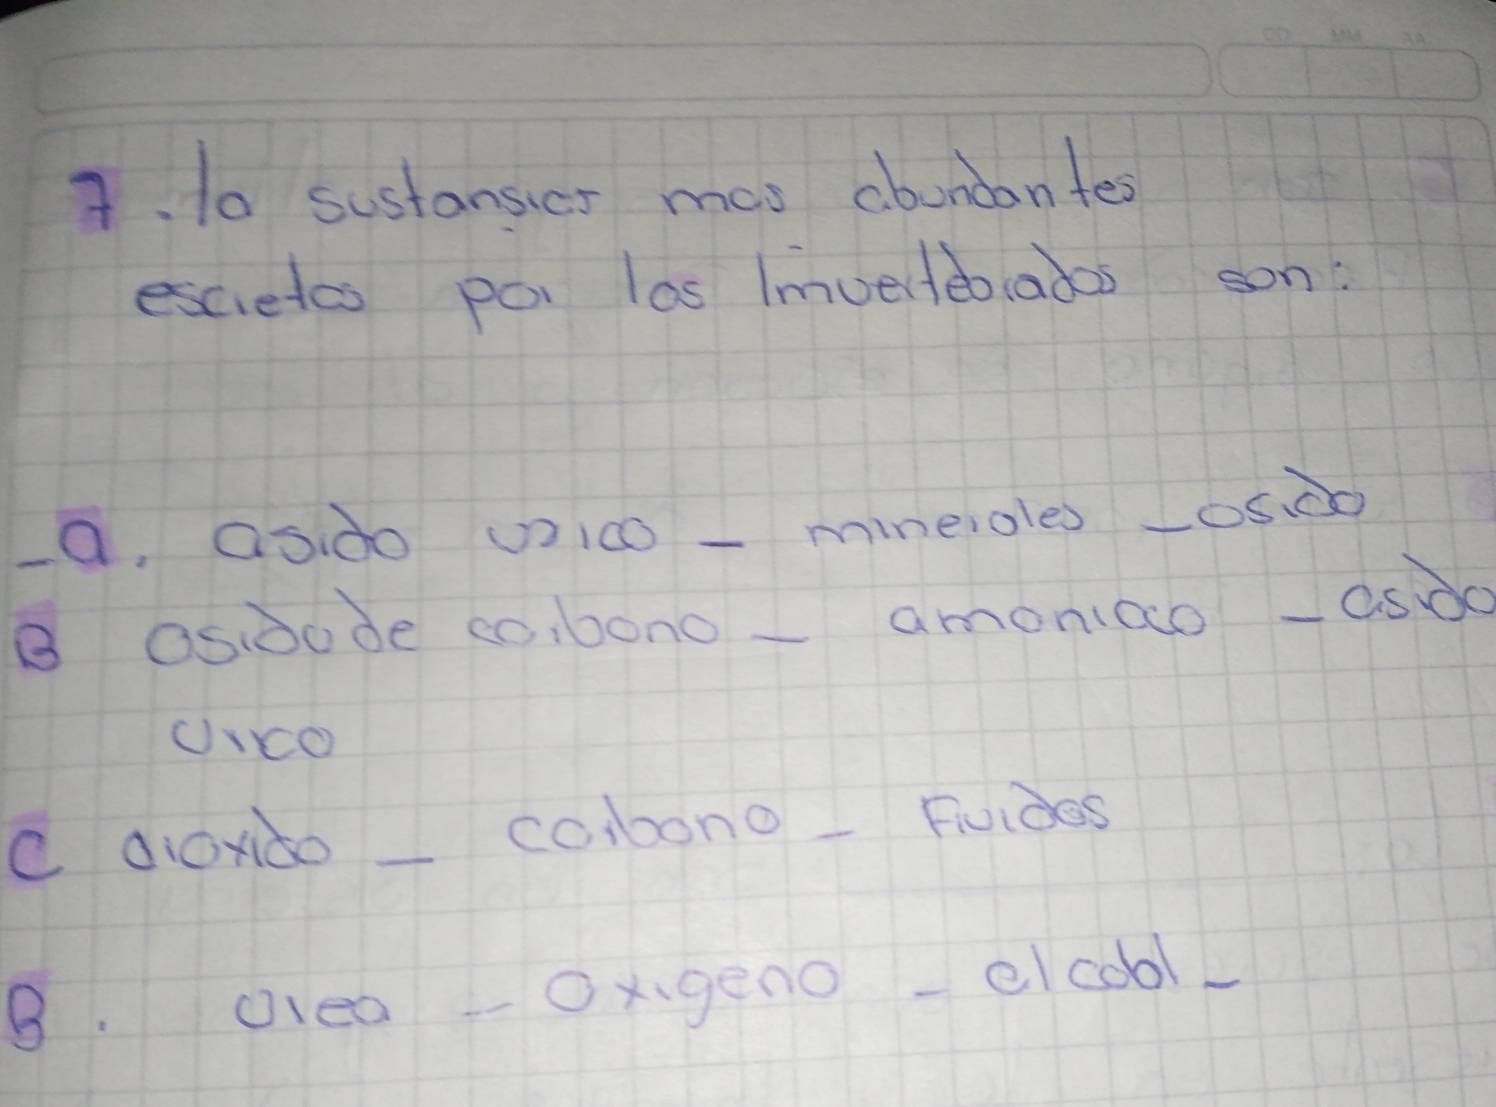 7. la sustansias mas abundantes
escretas por los Imvertebrados son:
- a. asido urico - minerales - osido
B osido de carbono - amoniaco - asido
urico
C dioxido - carbono - Fluidos
B. urea - Oxigeno - alcool -